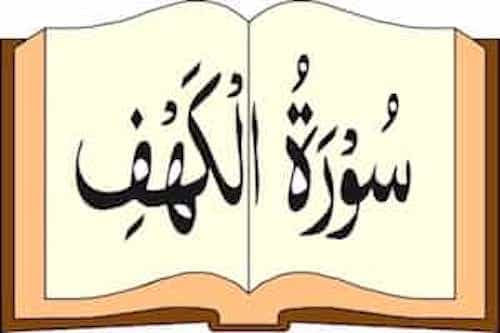 سُوْرَةُ الْكَهْفِ